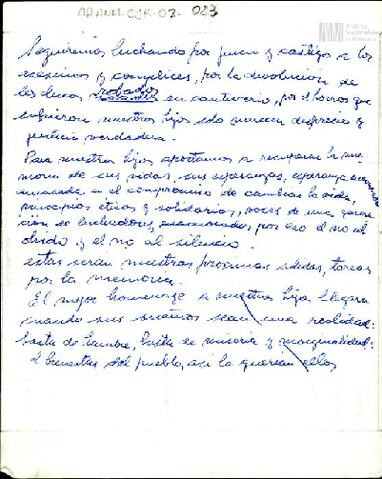 AR.ANM.CJK-02- 083
Archivo
Nacional de
la Memoria
Seguiremos luchando por juicio y castigo a los
asesinos y complices, por la devolucion de
los chicos robados en cautiverio, por el horror que
sufrieron nuestros hijos solo merecen desprecio y
justicia verdadera.
Para nuestros hijos apostamos a recuperar la me
moria de sus vidas, sus esperanzas,
en el compromiso de cambiar la vida,
principios eticos y solidarios, voces de una genera
cion de luchadores, por eso el no al
olvido y el no al silencio
estas seran nuestras proximas tareas
por la memoria.
El mejor homenaje a nuestros hijos, llegara
cuando sus sueños sean una realidad:
basta de hambre, basta de miseria y marginalidad:
el bienestar del pueblo, asi lo querian ellos